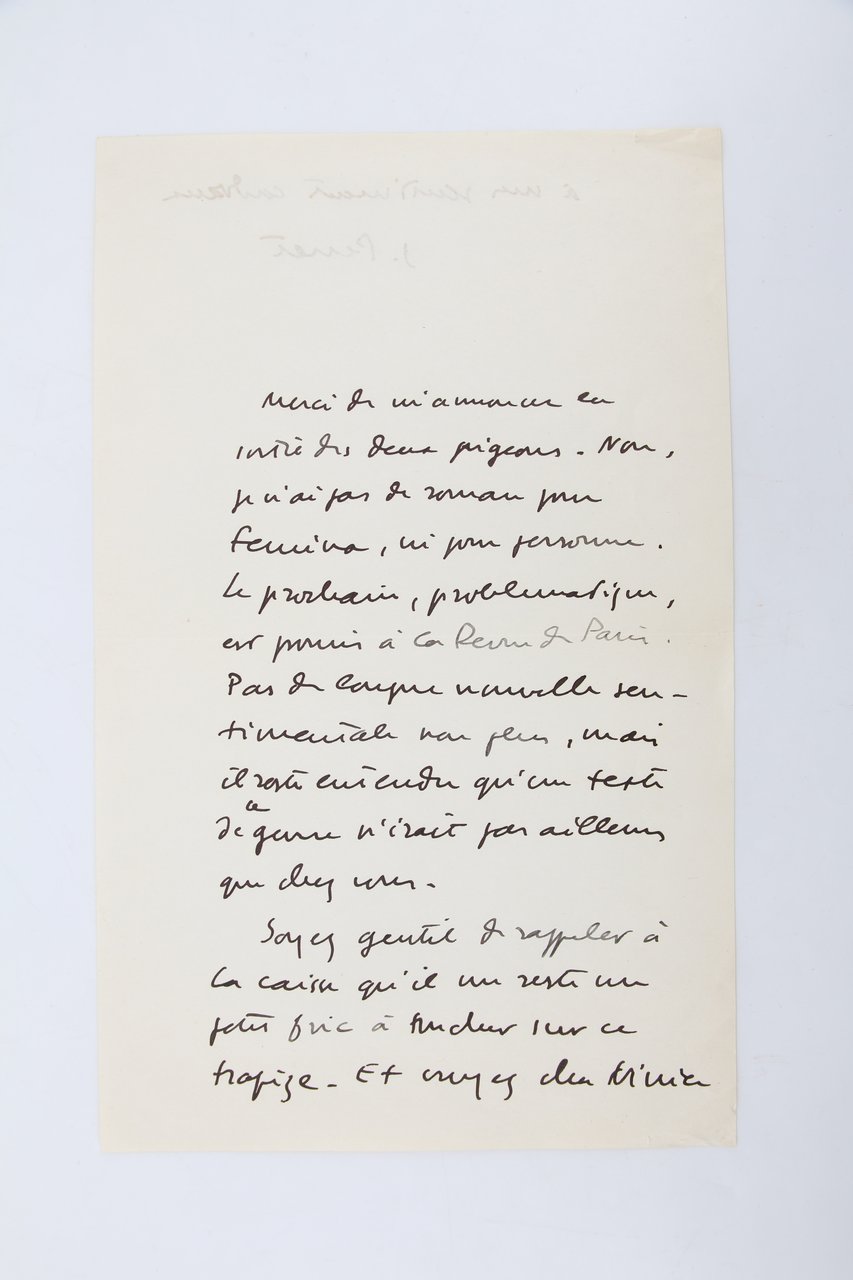 Merci de m'annoncer la
sortie des deux pigeons. Non,
je n'ai pas de roman pour
Femina, ni pour personne.
Le prochain, problématique,
est promis à la Revue de Paris.
Pas de longue nouvelle sen-
timentale non plus, mais
il reste entendu qu'un texte
de ce genre n'irait pas ailleurs
que chez vous.
Soyez gentil de rappeler à
la caisse qu'il me reste un
petit fric à toucher sur ce
trapèze. Et croyez cher
à mes sentiments cordiaux
J. Perret